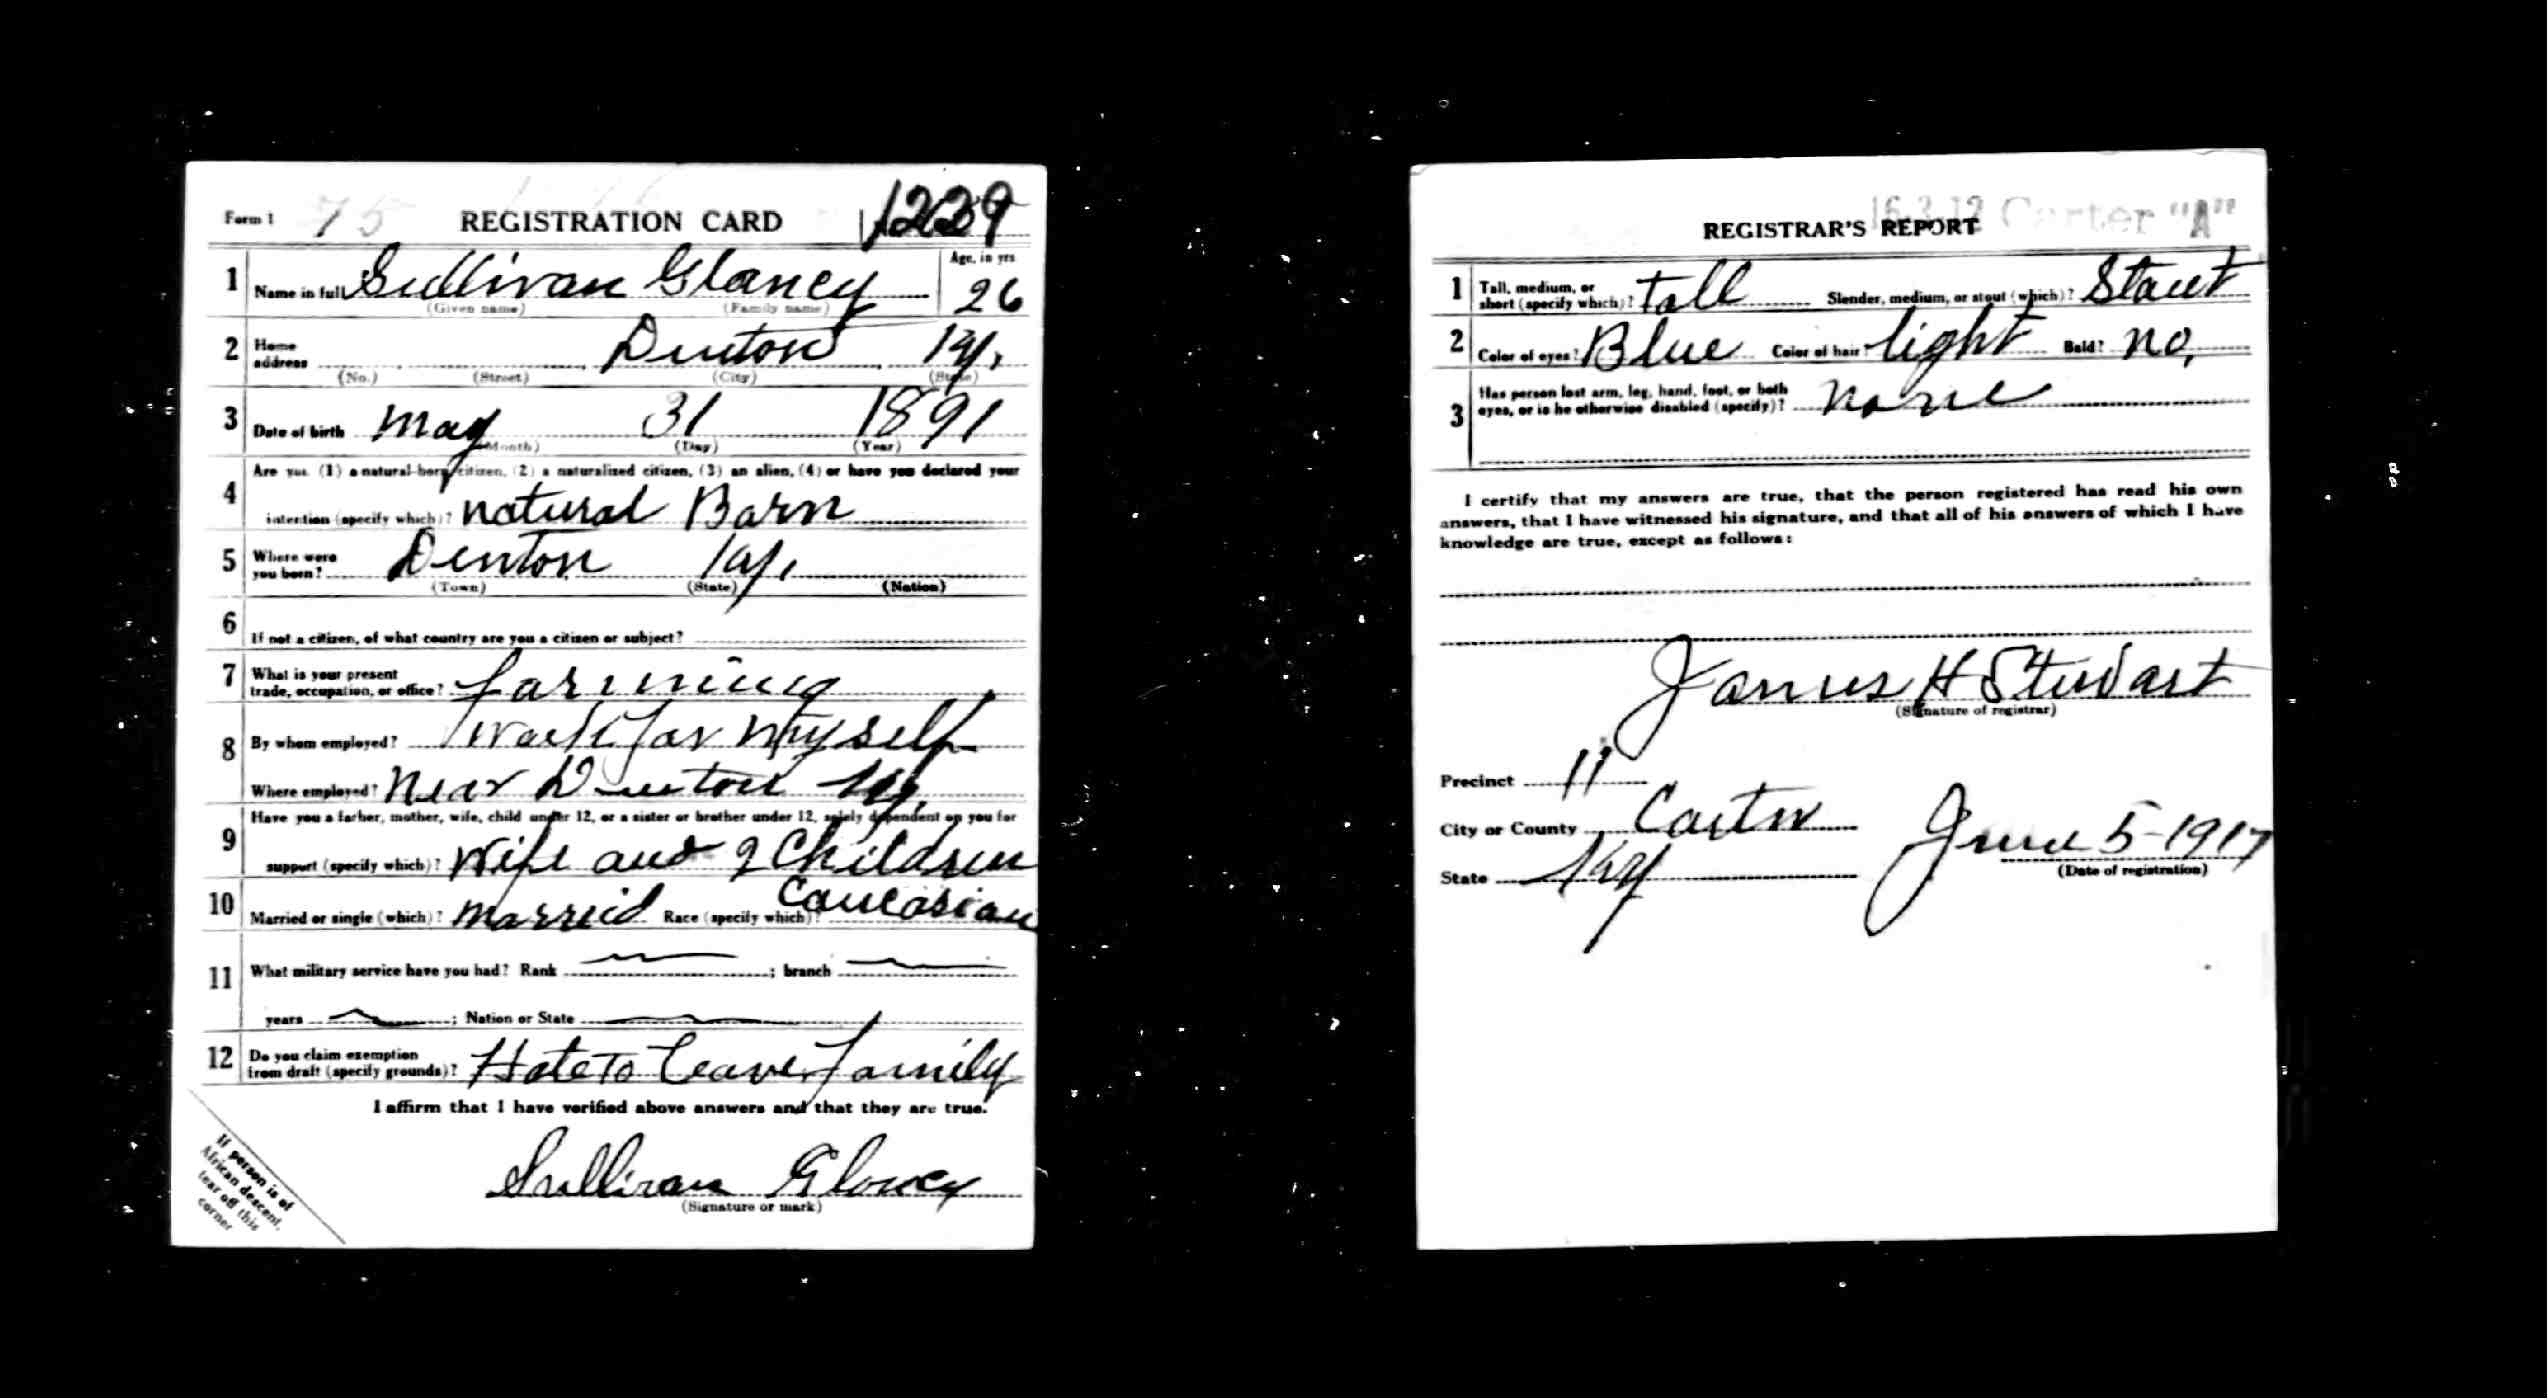 Form 1 75 REGISTRATION CARD 1229
1 Name in full Sullivan Glancy Age, in yrs 26
(Given name) (Family name)
2 Home address Denton Ky.
(No.) (Street) (City) (State)
3 Date of birth May 31 1891
(Month) (Day) (Year)
4 Are you (1) a natural-born citizen, (2) a naturalized citizen, (3) an alien, (4) or have you declared your
intention (specify which)? natural Born
5 Where were you born? Denton Ky.
(Town) (State) (Nation)
6 If not a citizen, of what country are you a citizen or subject?
7 What is your present trade, occupation, or office? farming
8 By whom employed? Work for Myself
Where employed? Near Denton Ky.
9 Have you a father, mother, wife, child under 12, or a sister or brother under 12, solely dependent on you for
support (specify which)? Wife and 2 Children
10 Married or single (which)? married Race (specify which)? Caucasian
11 What military service have you had? Rank ; branch
years ; Nation or State
12 Do you claim exemption from draft (specify grounds)? Hate To Leave Family
I affirm that I have verified above answers and that they are true.
Sullivan Glancy
(Signature or mark)
If person is of
African descent,
tear off this
corner
16-3-12 Carter "A"
REGISTRAR'S REPORT
1 Tall, medium, or short (specify which)? tall Slender, medium, or stout (which)? Stout
2 Color of eyes? Blue Color of hair? light Bald? no.
3 Has person lost arm, leg, hand, foot, or both
eyes, or is he otherwise disabled (specify)? none
I certify that my answers are true, that the person registered has read his own
answers, that I have witnessed his signature, and that all of his answers of which I have
knowledge are true, except as follows:
James H Studart
(Signature of registrar)
Precinct 11
City or County Carter
State Ky
June 5-1917
(Date of registration)